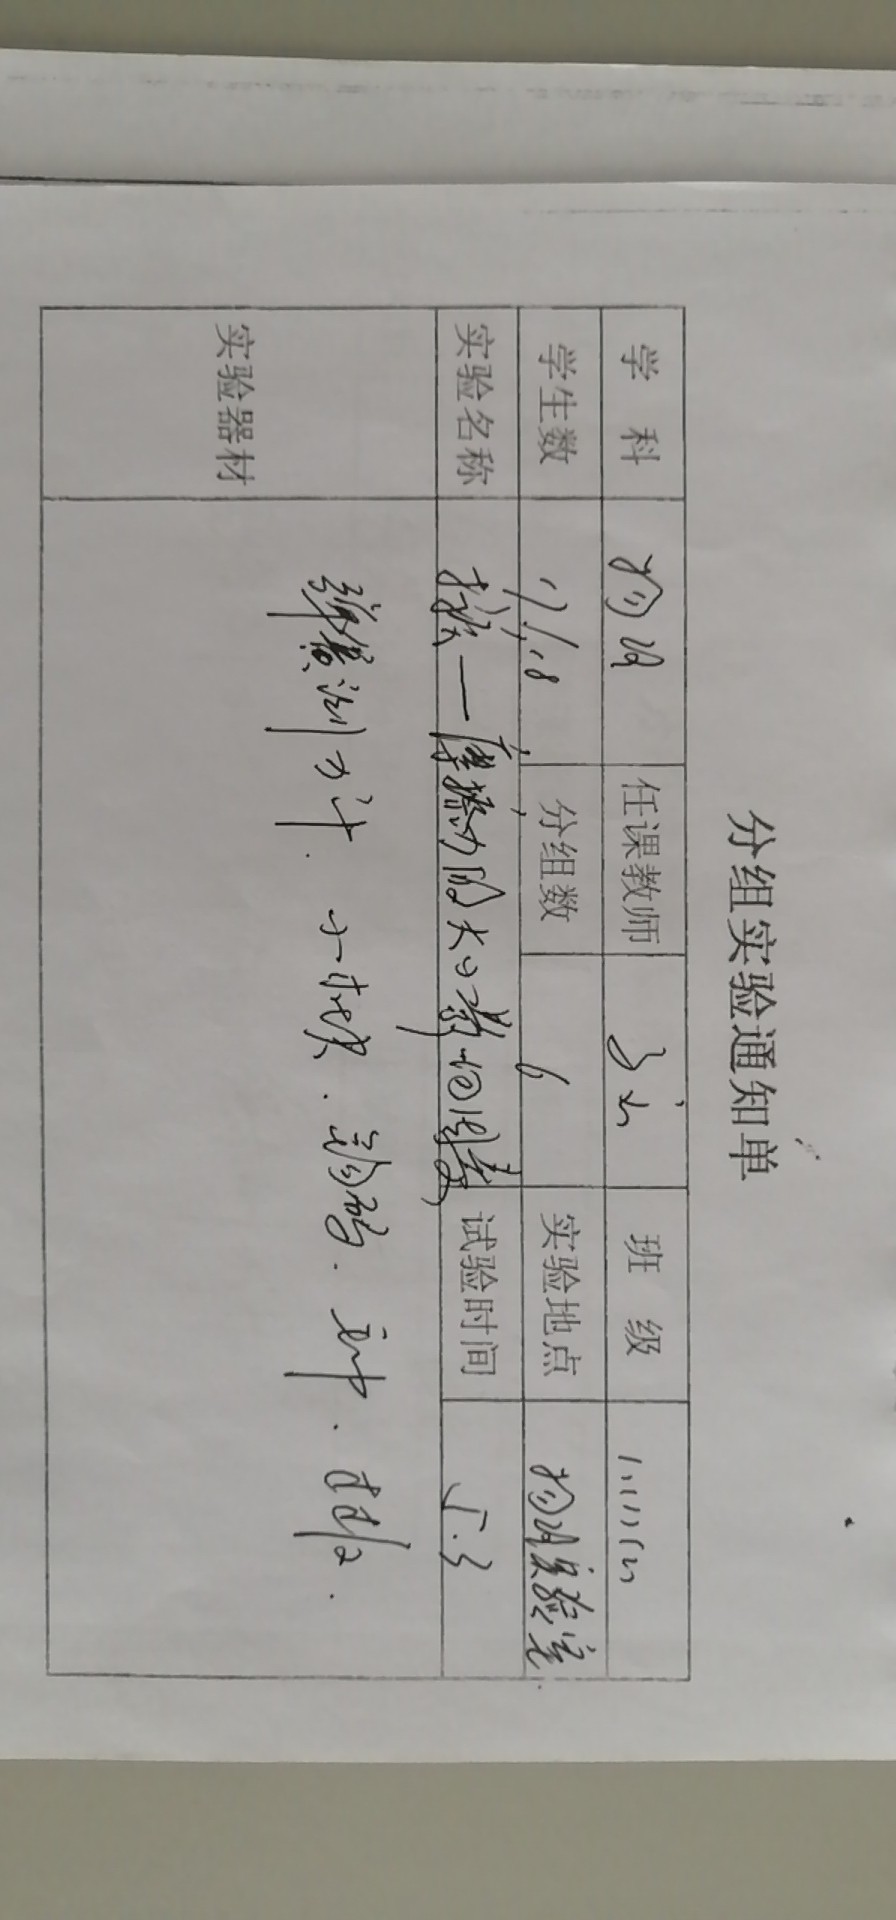 分组实验通知单
学 科 物理 任课教师 班 级
学生数 17/18 分组数 6 实验地点 物理实验室
实验名称 探究一摩擦力的大小与什么因素 试验时间 5.3
实验器材 弹簧测力计. 木块. 砝码. 毛巾.